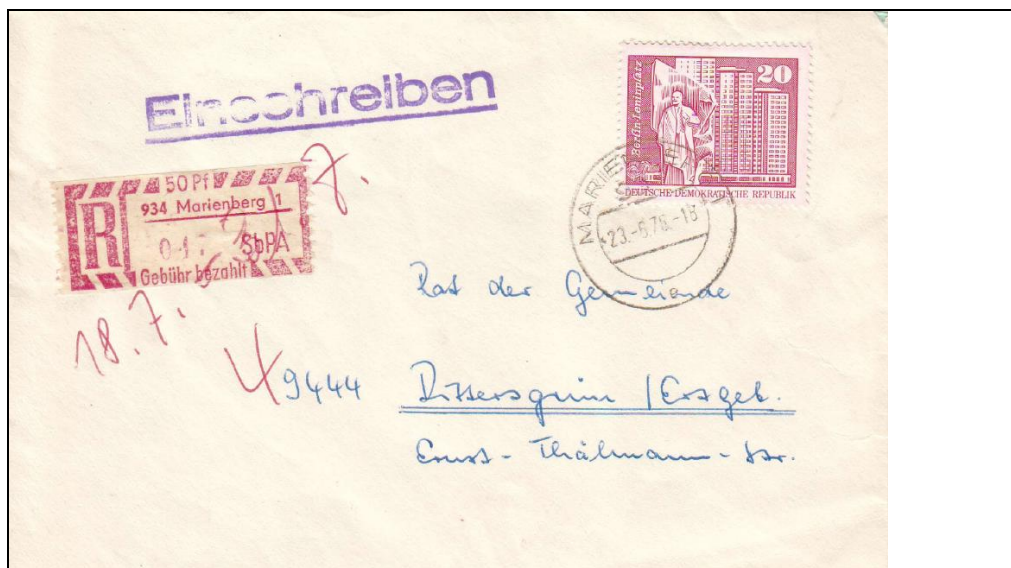 Einschreiben
20
Berlin Leninplatz
DEUTSCHE DEMOKRATISCHE REPUBLIK
23.-6.76.-18
50 Pf
R
934 Marienberg 1
SbPA
Gebühr bezahlt
7.
18.7.
Rat der Gemeinde
9444 Rittersgrün / Erzgeb.
Ernst-Thälmann-Str.